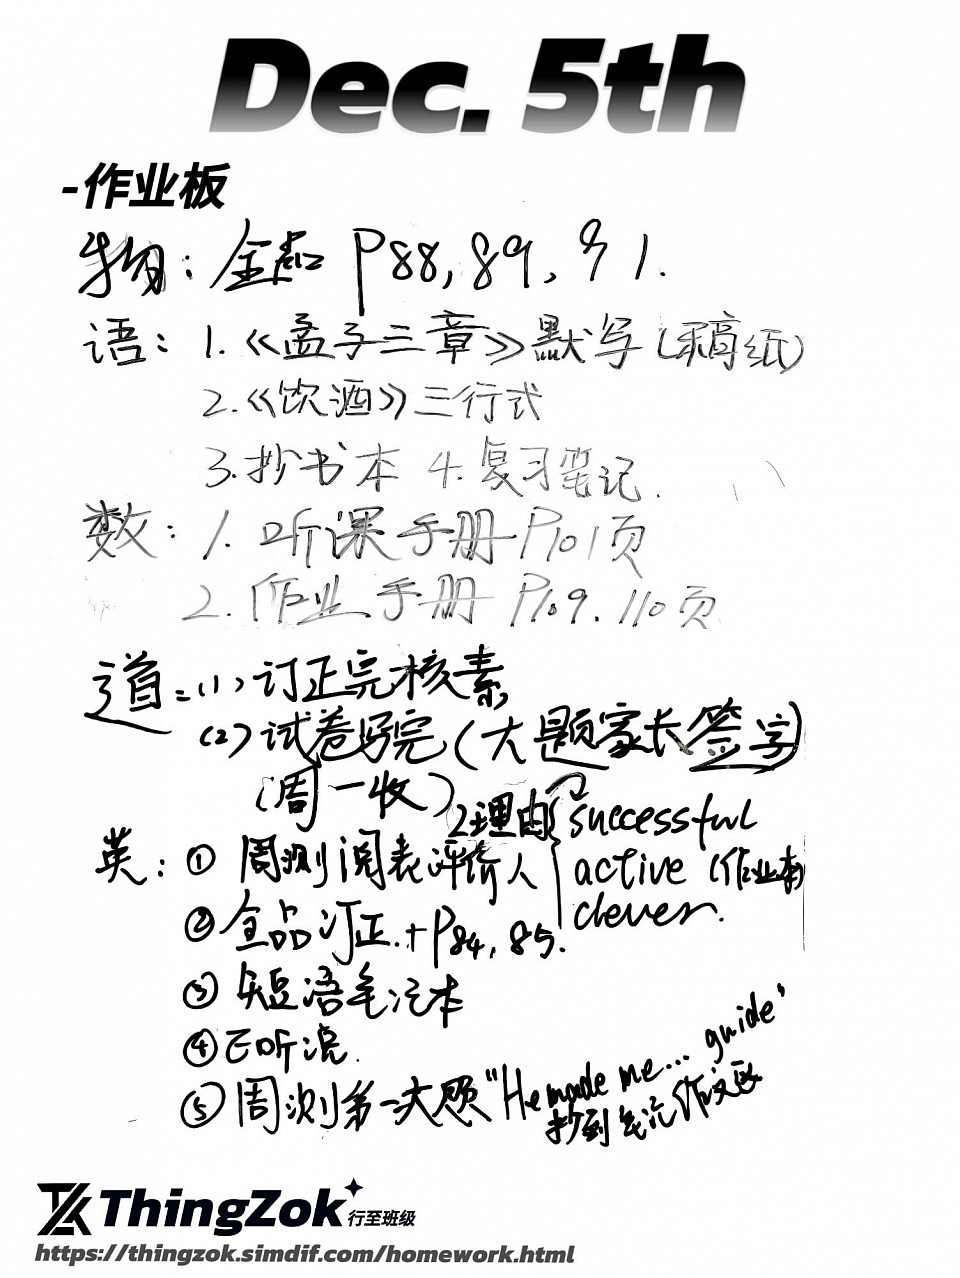 Dec. 5th
-作业板
物: 全品 P88, 89, 91.
语: 1.《孟子三章》默写(稿纸)
2.《饮酒》三行式
3.抄书本 4.复习笔记.
数: 1. 听课手册 P101页
2. 作业手册 P109. 110页
道:(1)订正完核素
(2)试卷写完(大题家长签字)
(周一收)
2理由 successful
英: ① 周测阅表评价人 active (作业本)
clever.
② 全品订正.+P84, 85.
③ 短语笔记本
④ E听说.
⑤ 周测第一大题 "He made me... guide"
抄到笔记作文区
ThingZok 行至班级
https://thingzok.simdif.com/homework.html